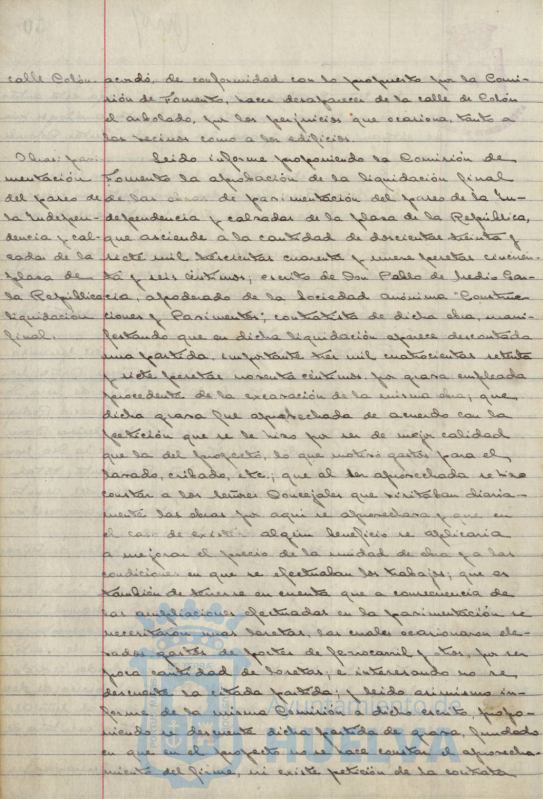 calle Colón.
acordó, de conformidad con lo propuesto por la Comi-
sión de Fomento, hacer desaparecer de la calle de Colón
el arbolado, por los perjuicios que ocasiona, tanto a
los vecinos como a los edificios.
Obras pavi-
mentación
del paseo de
la Indepen-
dencia y cal-
zadas de la
plaza de
la República
liquidación
final.
Leido informe proponiendo la Comisión de
Fomento la aprobación de la liquidación final
de las obras de pavimentación del paseo de la In-
dependencia y calzadas de la plaza de la República,
que asciende a la cantidad de doscientas treinta y
siete mil trescientas cuarenta y nueve pesetas cincuen-
ta y seis céntimos; escrito de Don Pablo de Medio Gar-
cia, apoderado de la Sociedad anónima "Construc-
ciones y Pavimentos", contratista de dicha obra, mani-
festando que en dicha liquidación aparece descontada
una partida, importante tres mil cuatrocientas setenta
y siete pesetas noventa céntimos, por grava empleada
procedente de la excavación de la misma obra; que
dicha grava fue aprovechada de acuerdo con la
petición que se le hizo por ser de mejor calidad
que la del proyecto, lo que motivó gastos para el
lavado, cribado, etc.; que al ser aprovechada se hizo
constar a los señores Concejales que visitaban diaria-
mente las obras por aqui se aprovechara y que en
el caso de existir algún beneficio se aplicaria
a mejorar el precio de la unidad de obra y a las
condiciones en que se efectuaban los trabajos; que es
también de tenerse en cuenta que a consecuencia de
las ampliaciones efectuadas en la pavimentación se
necesitaron unas losetas, las cuales ocasionaron ele-
vados gastos de portes de ferrocarril y otros, por ser
poca cantidad de losetas, e interesando no se
descuente la citada partida; y leido asimismo in-
forme de la misma Comisión a dicho escrito, propo-
niendo se descuente dicha partida de grava, fundado
en que en el proyecto no se hace constar el aprovecha-
miento del firme, ni existe petición de la contrata
Ayuntamiento de
HUELVA